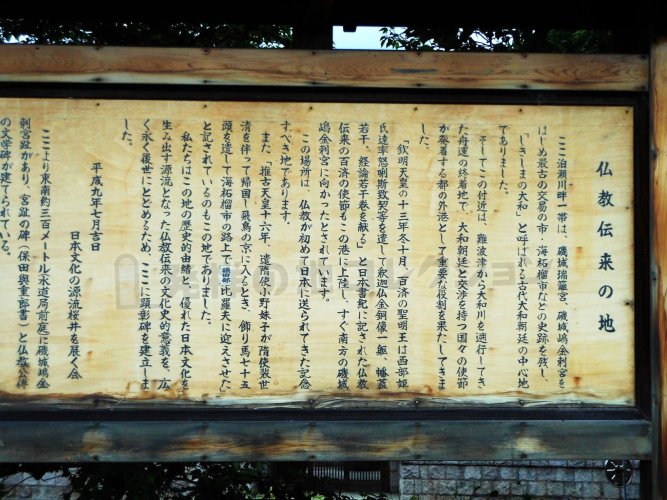 仏教伝来の地
ここ泊瀬川畔一帯は、磯城瑞籬宮、磯城嶋金刺宮を
はじめ最古の交易の市・海柘榴市などの史跡を残し、
「しきしまの大和」と呼ばれる古代大和朝廷の中心地
でありました。
そしてこの付近は、難波津から大和川を遡行してき
た舟運の終着地で、大和朝廷と交渉を持つ国々の使節
が発着する都の外港として重要な役割を果たしてきま
した。
「欽明天皇の十三年冬十月、百済の聖明王は西部姫
氏達率怒唎斯致契等を遣して釈迦仏金銅像一軀、幡蓋
若干、経論若干巻を献る」と日本書紀に記された仏教
伝来の百済の使節もこの港に上陸し、すぐ南方の磯城
嶋金刺宮に向かったとされています。
この場所は、仏教が初めて日本に送られてきた記念
すべき地であります。
また「推古天皇十六年、遣隋使小野妹子が隋使裴世
清を伴って帰国し飛鳥の京に入るとき、飾り馬七十五
頭を遣して海柘榴市の路上で額田部比羅夫に迎えさせた」
と記されているのもこの地でありました。
私たちはこの地の歴史的由緒と、優れた日本文化を
生み出す源流となった仏教伝来の文化史的意義を、広
く永く後世にとどめるため、ここに顕彰碑を建立しま
した。
平成九年七月吉日
日本文化の源流桜井を展く会
ここより東南約三百メートル水道局前庭に磯城嶋金
刺宮趾があり、宮趾の碑(保田與重郎書)と仏教公伝
の文学碑が建てられている。